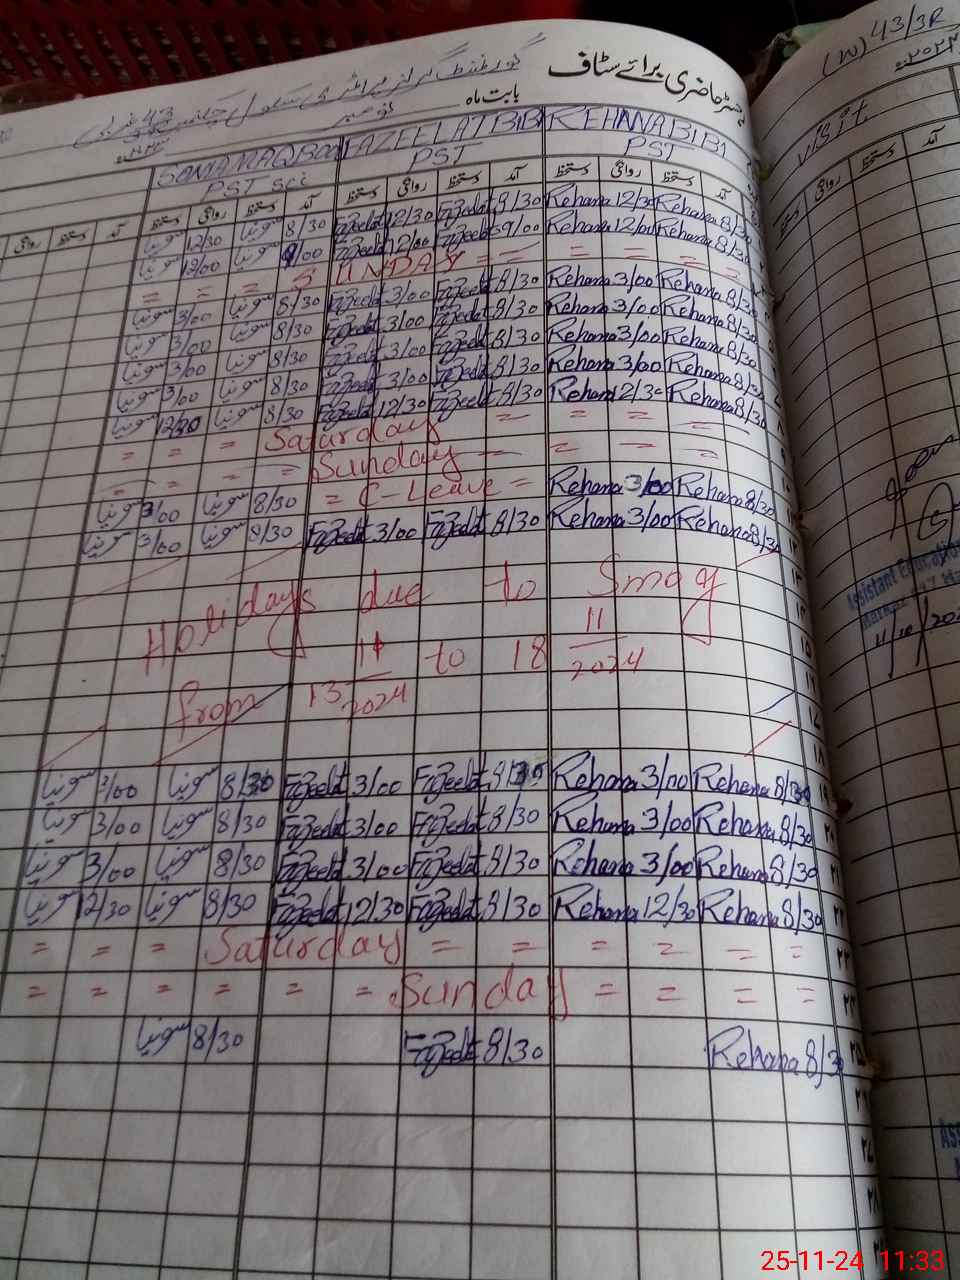 رجسٹر حاضری برائے سٹاف
گورنمنٹ گرلز پرائمری سکول
بابت ماہ نومبر
REHANA BIBI FAZEELAT BIBI
PST PST PST Sci
آمد دستخط روانگی دستخط آمد دستخط روانگی دستخط آمد دستخط روانگی دستخط آمد دستخط روانگی
سونیا 12/30 سونیا 8/30 Fazeelat 12/30 Fazeelat 8/30 Rehana 12/30 Rehana 8/30
سونیا 12/00 سونیا 9/00 Fazeelat 12/00 Fazeelat 9/00 Rehana 12/00 Rehana 8/30
= = = SUNDAY = = = = = =
سونیا 3/00 سونیا 8/30 Fazeelat 3/00 Fazeelat 8/30 Rehana 3/00 Rehana 8/30
سونیا 3/00 سونیا 8/30 Fazeelat 3/00 Fazeelat 8/30 Rehana 3/00 Rehana 8/30
سونیا 3/00 سونیا 8/30 Fazeelat 3/00 Fazeelat 8/30 Rehana 3/00 Rehana 8/30
سونیا 3/00 سونیا 8/30 Fazeelat 3/00 Fazeelat 8/30 Rehana 3/00 Rehana 8/30
سونیا 12/30 سونیا 8/30 Fazeelat 12/30 Fazeelat 8/30 Rehana 12/30 Rehana 8/30
= = = Saturday = = = = =
= = = = Sunday = = = =
سونیا 3/00 سونیا 8/30 = C-Leave = Rehana 3/00 Rehana 8/30
سونیا 3/00 سونیا 8/30 Fazeelat 3/00 Fazeelat 8/30 Rehana 3/00 Rehana 8/30
Holidays due to Smog
from 13 11/2024 to 18 11/2024
سونیا 3/00 سونیا 8/30 Fazeelat 3/00 Fazeelat 8/30 Rehana 3/00 Rehana 8/30
سونیا 3/00 سونیا 8/30 Fazeelat 3/00 Fazeelat 8/30 Rehana 3/00 Rehana 8/30
سونیا 3/00 سونیا 8/30 Fazeelat 3/00 Fazeelat 8/30 Rehana 3/00 Rehana 8/30
سونیا 12/30 سونیا 8/30 Fazeelat 12/30 Fazeelat 8/30 Rehana 12/30 Rehana 8/30
= = = Saturday = = = = = =
= = = = = = Sunday = = = =
سونیا 8/30 Fazeelat 8/30 Rehana 8/30
(W) 43/3R
Visit
آمد دستخط روانگی
Assistant Education
25-11-24 11:33